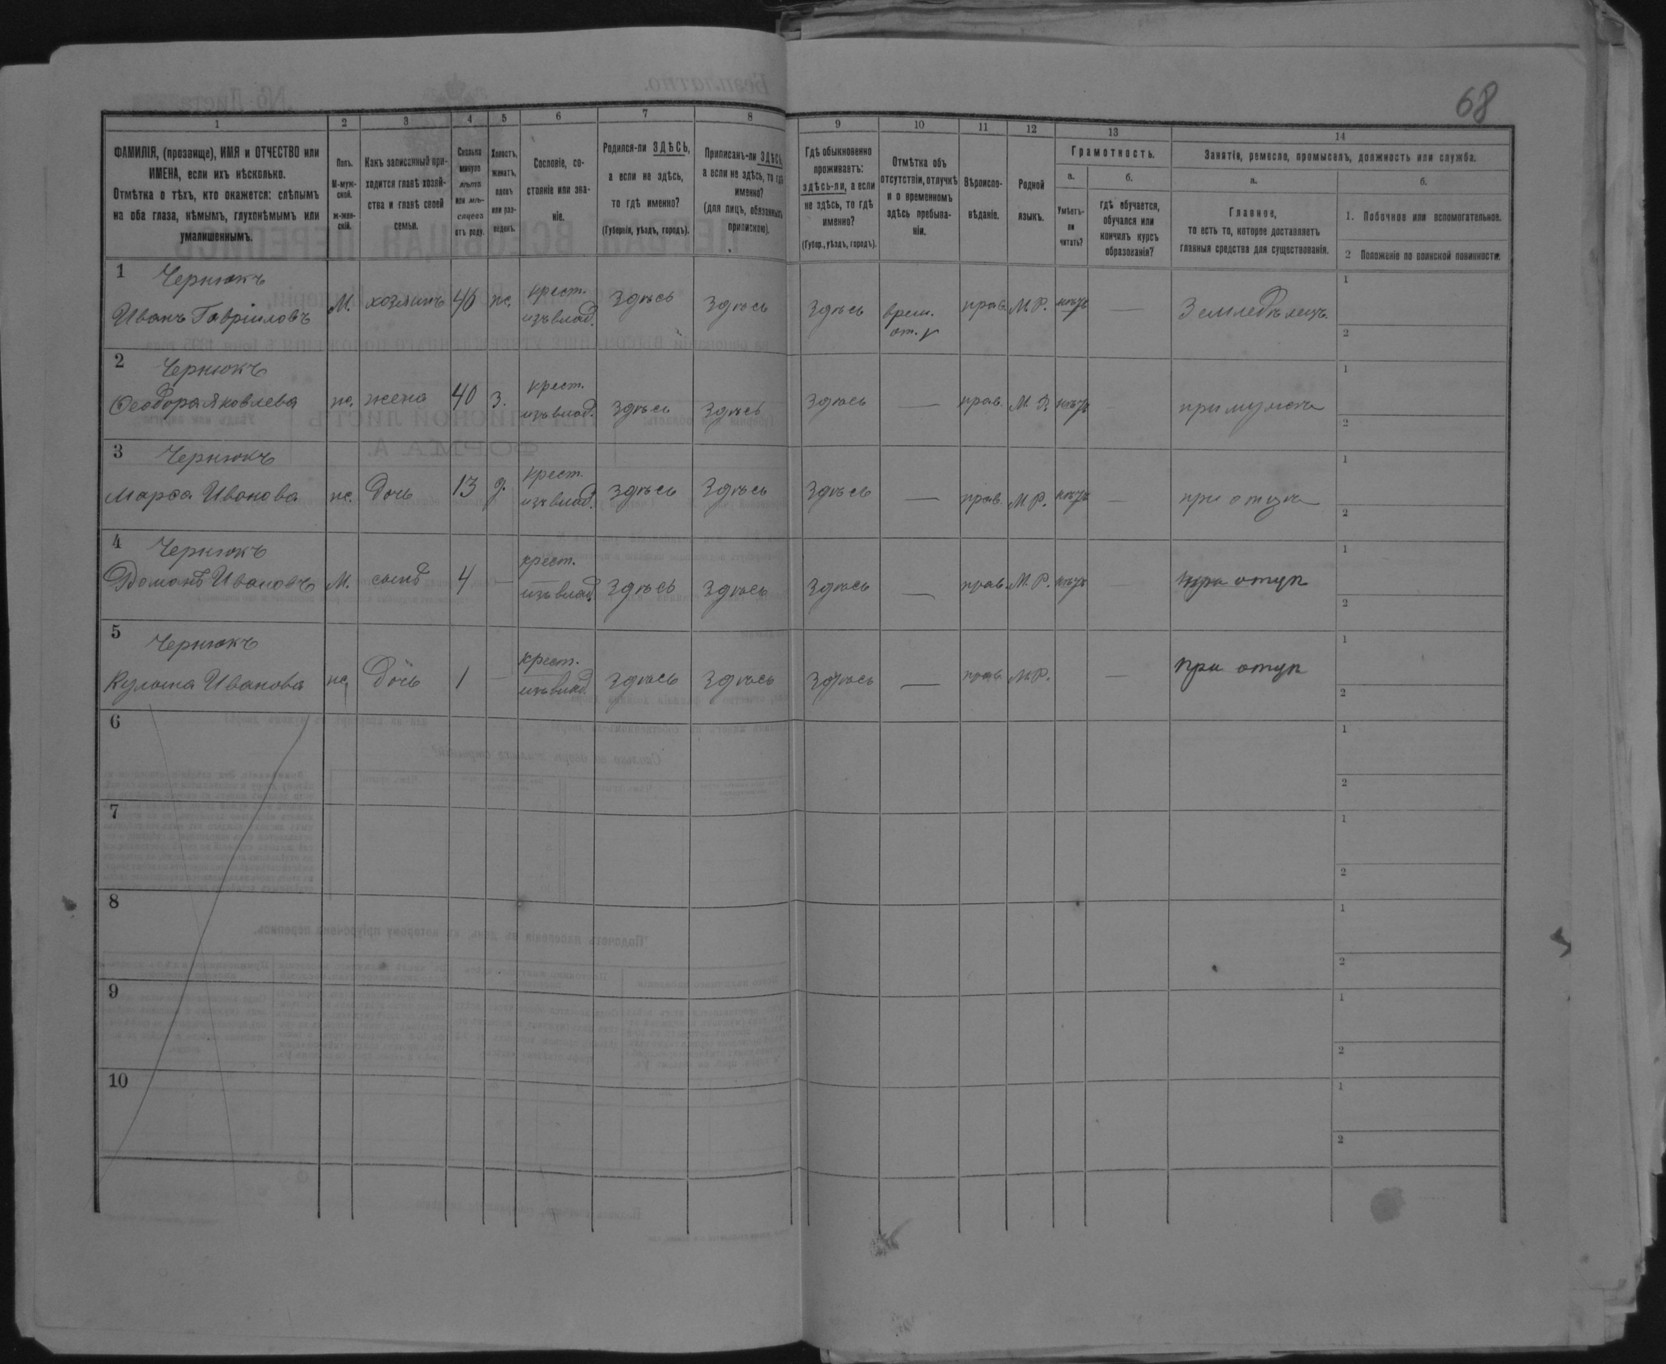 68
1
2
3
4
5
6
7
8
9
10
11
12
13
14
ФАМИЛІЯ, (прозвище), ИМЯ и ОТЧЕСТВО или
ИМЕНА, если ихъ нѣсколько.
Отмѣтка о тѣхъ, кто окажется: слѣпымъ
на оба глаза, нѣмымъ, глухонѣмымъ или
умалишеннымъ.
Полъ.
М-муж-
ской.
ж-жен-
скій.
Какъ записанный при-
ходится главѣ хозяй-
ства и главѣ своей
семьи.
Сколько
минуло
лѣтъ
или мѣ-
сяцевъ
отъ роду.
Холостъ,
женатъ,
вдовъ
или раз-
веденъ.
Сословіе, со-
стояніе или зва-
ніе.
Родился-ли ЗДѢСЬ,
а если не здѣсь,
то гдѣ именно?
(Губернія, уѣздъ, городъ).
Приписанъ-ли ЗДѢСЬ,
а если не здѣсь, то гдѣ
именно?
(для лицъ, обязанныхъ
припискою).
Гдѣ обыкновенно
проживаетъ:
здѣсь-ли, а если
не здѣсь, то гдѣ
именно?
(Губер., уѣздъ, городъ).
Отмѣтка объ
отсутствіи, отлучкѣ
и о временномъ
здѣсь пребыва-
ніи.
Вѣроиспо-
вѣданіе.
Родной
языкъ.
Грамотность.
а.
Умѣетъ-
ли
читать?
б.
гдѣ обучается,
обучался или
кончилъ курсъ
образованія?
Занятіе, ремесло, промыселъ, должность или служба.
а.
Главное,
то есть то, которое доставляетъ
главныя средства для существованія.
б.
1. Побочное или вспомогательное.
2 Положеніе по воинской повинности.
1
Чернюкъ
Иванъ Гавріиловъ
М. хозяинъ 46 ж. крест.
изъ влад. Здѣсь Здѣсь Здѣсь врем.
от. прав. М.Р. нѣтъ — Земледѣлецъ
1
2
2
Чернюкъ
Феодора Яковлева
ж. жена 40 з. крест.
изъ влад. Здѣсь Здѣсь Здѣсь — прав. М.Р. нѣтъ при мужѣ
1
2
3
Чернюкъ
Марфа Иванова
ж. дочь 13 д. крест.
изъ влад. Здѣсь Здѣсь Здѣсь — прав. М.Р. нѣтъ — при отцѣ
1
2
4
Чернюкъ
Ивановъ
М. сынъ 4 — крест.
изъ влад. Здѣсь Здѣсь Здѣсь — прав. М.Р. нѣтъ — при отцѣ
1
2
5
Чернюкъ
Иванова
ж. дочь 1 — крест.
изъ влад. Здѣсь Здѣсь Здѣсь — прав. М.Р. — при отцѣ
1
2
6
1
2
7
1
2
8
1
2
9
1
2
10
1
2